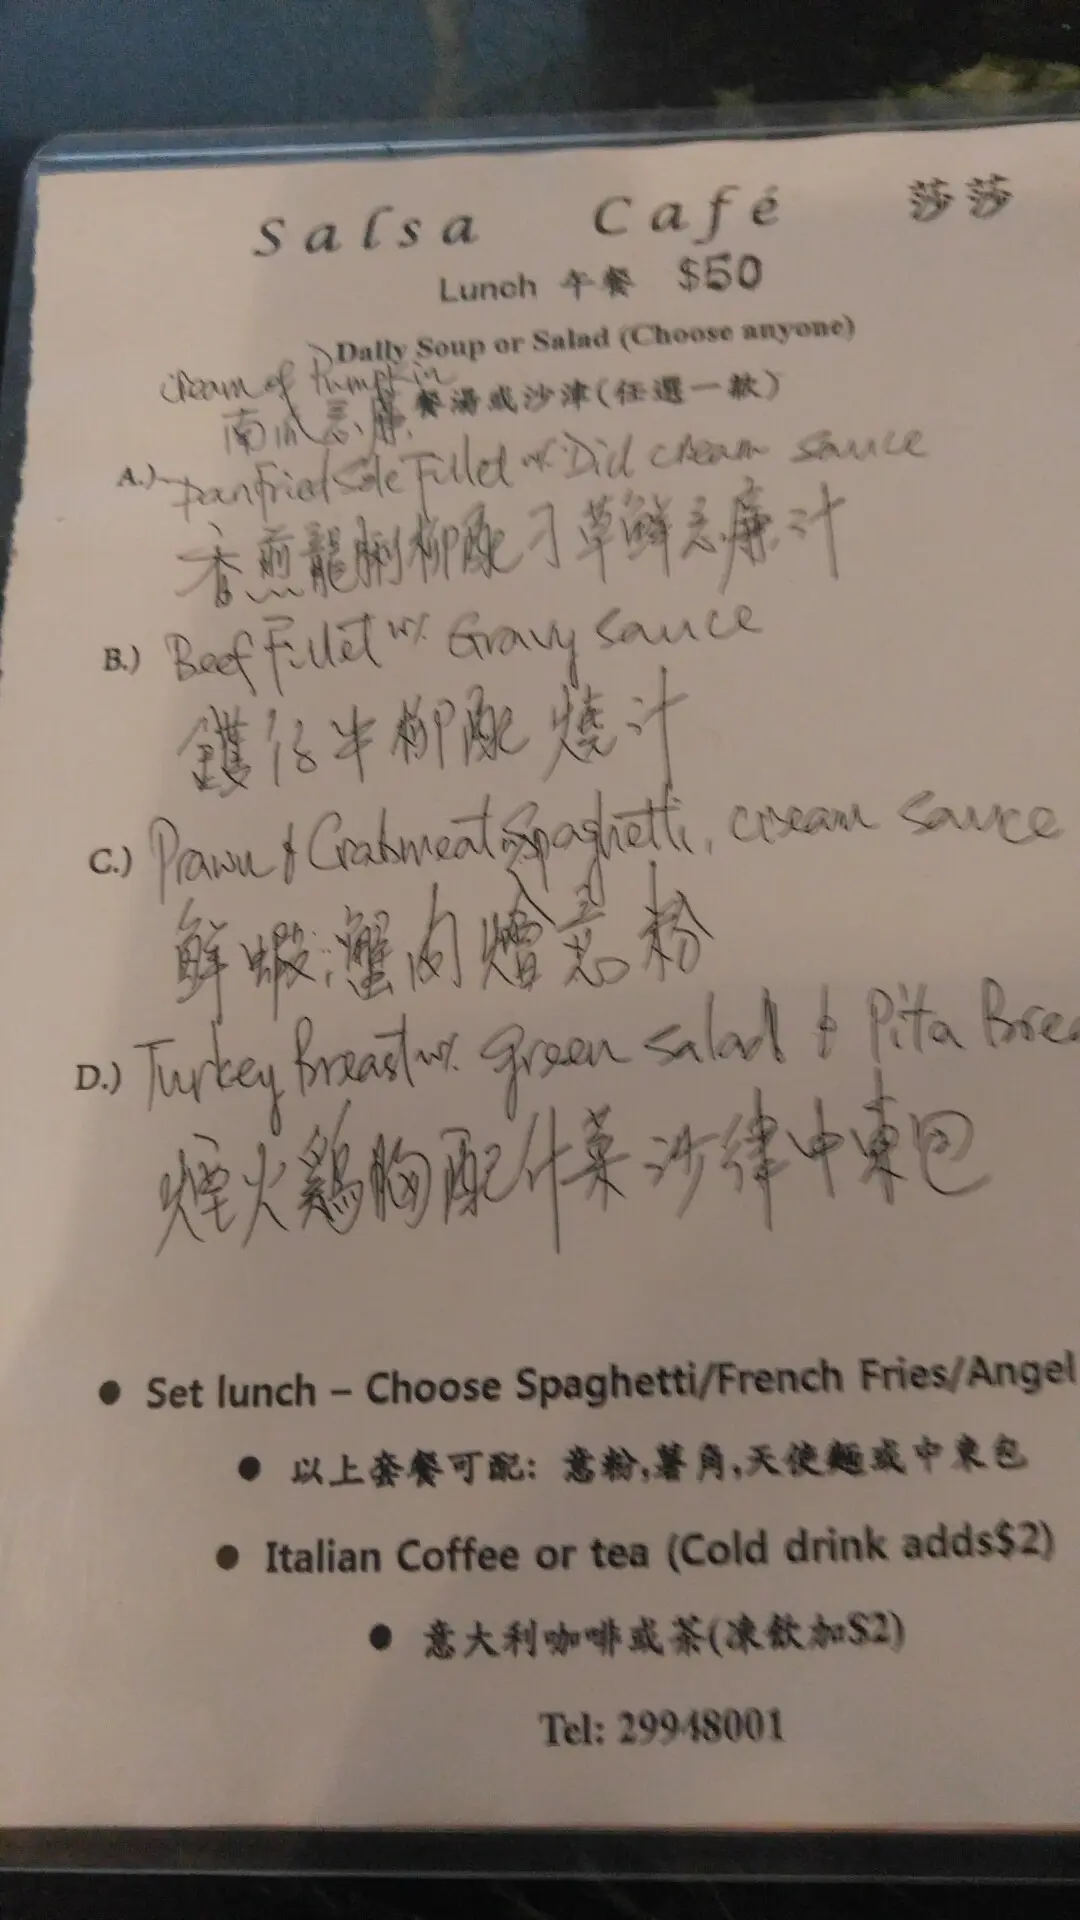 Salsa Café 莎莎
Lunch 午餐 $50
Daily Soup or Salad (Choose anyone)
Cream of Pumpkin
餐湯或沙津(任選一款)
南瓜忌廉
A.) Panfried Sole Fillet w/. Dil cream sauce
香煎龍脷柳配刁草鮮忌廉汁
B.) Beef Fillet w/. Gravy Sauce
牛柳配燒汁
C.) Prawn & Crabmeat Spaghetti, cream sauce
鮮蝦蟹肉燴意粉
D.) Turkey Breast w/. green salad & Pita Brea
煙火鷄胸配什菜沙律中東包
• Set lunch – Choose Spaghetti/French Fries/Angel
• 以上套餐可配: 意粉,薯角,天使麵或中東包
• Italian Coffee or tea (Cold drink adds$2)
• 意大利咖啡或茶(凍飲加$2)
Tel: 29948001